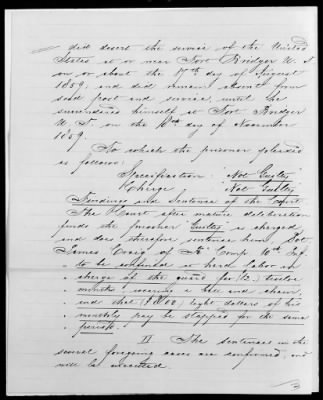 did desert the service of the United
States at or near Fort Bridger U. T
on or about the 17th day of August
1859, and did remain absent from
said post and service, until he
surrendered himself at Fort Bridger
U. T on the 10th day of November
1859.
To which the prisoner pleaded
as follows:
Specification "Not Guilty"
Charge "Not Guilty"
Findings and Sentence of the Court
The Court after mature deliberation
finds the prisoner "Guilty" as charged
and does therefore sentence him
James Craig of Comp. 10th Inf.
to be confined at hard labor in
charge of the guard for (12) twelve
months wearing a ball and chain,
and that ($8.00) eight dollars of his
monthly pay be stopped for the same
period.
II The sentences in the
several foregoing cases are confirmed, and
will be executed.